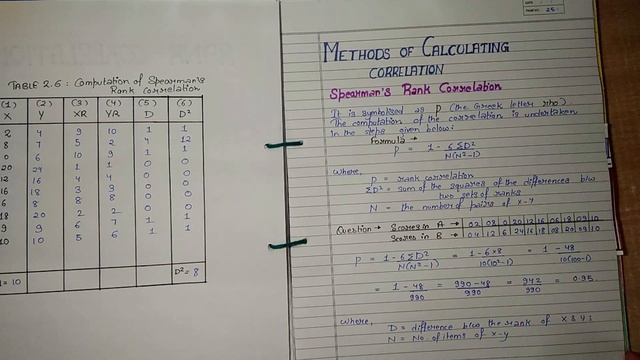 TABLE 2.6 : Computation of Spearman's
Rank Correlation
(1) (2) (3) (4) (5) (6)
X Y XR YR D D²
2 4 9 10 1 1
8 7 5 2 4 12
0 6 10 9 1 1
20 24 1 1 0 0
12 16 4 4 0 0
16 18 3 3 0 0
6 8 8 8 0 0
18 20 2 2 0 0
9 9 6 7 1 1
10 10 5 6 1 1
= 10 D² = 8
METHODS OF CALCULATING
CORRELATION
Spearman's Rank Correlation
It is symbolised as p (the Greek letter rho)
The computation of the correlation is undertaken
in the steps given below:
Formula →
P = 1 - 6ΣD²
N(N²-1)
where,
P = rank correlation
ΣD² = sum of the squares of the differences b/w
two sets of ranks
N = the number of pairs of x-y
Question → Scores in A → 02 08 0 20 12 16 06 18 09 10
Scores in B → 04 12 6 24 16 18 08 20 09 10
P = 1 - 6ΣD² = 1 - 6×8 = 1 - 48
N(N²-1) 10(10²-1) 10(100-1)
= 1 - 48 = 990-48 = 942 = 0.95
990 990 990
where,
D = difference b/w the rank of X & Y:
N = No. of items of x-y